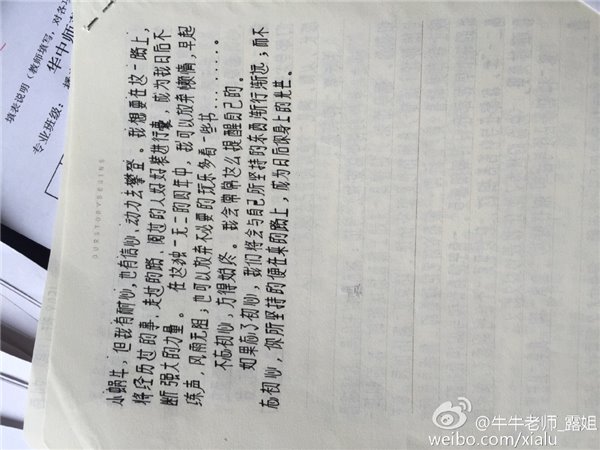 填表说明（教师填写，对各项
华中师
专业班级：
OURSTORYBEGINS
小蜗牛，但我有耐心，也有信心、动力去攀登。我想要在这一路上，
将经历过的事、走过的路、阅过的人好好装进行囊，成为我日后不
断强大的力量。在这独一无二的四年中，我可以放弃懒惰，早起
练声，风雨无阻；也可以放弃不必要的玩乐多看一些书……。
不忘初心，方得始终。我会常常这么提醒自己的。
如果忘了初心，我们将会与自己所坚持的东西渐行渐远；而不
忘初心，你所坚持的便在来的路上，成为日后你身上的光芒。
@牛牛老师_露姐
weibo.com/xialu